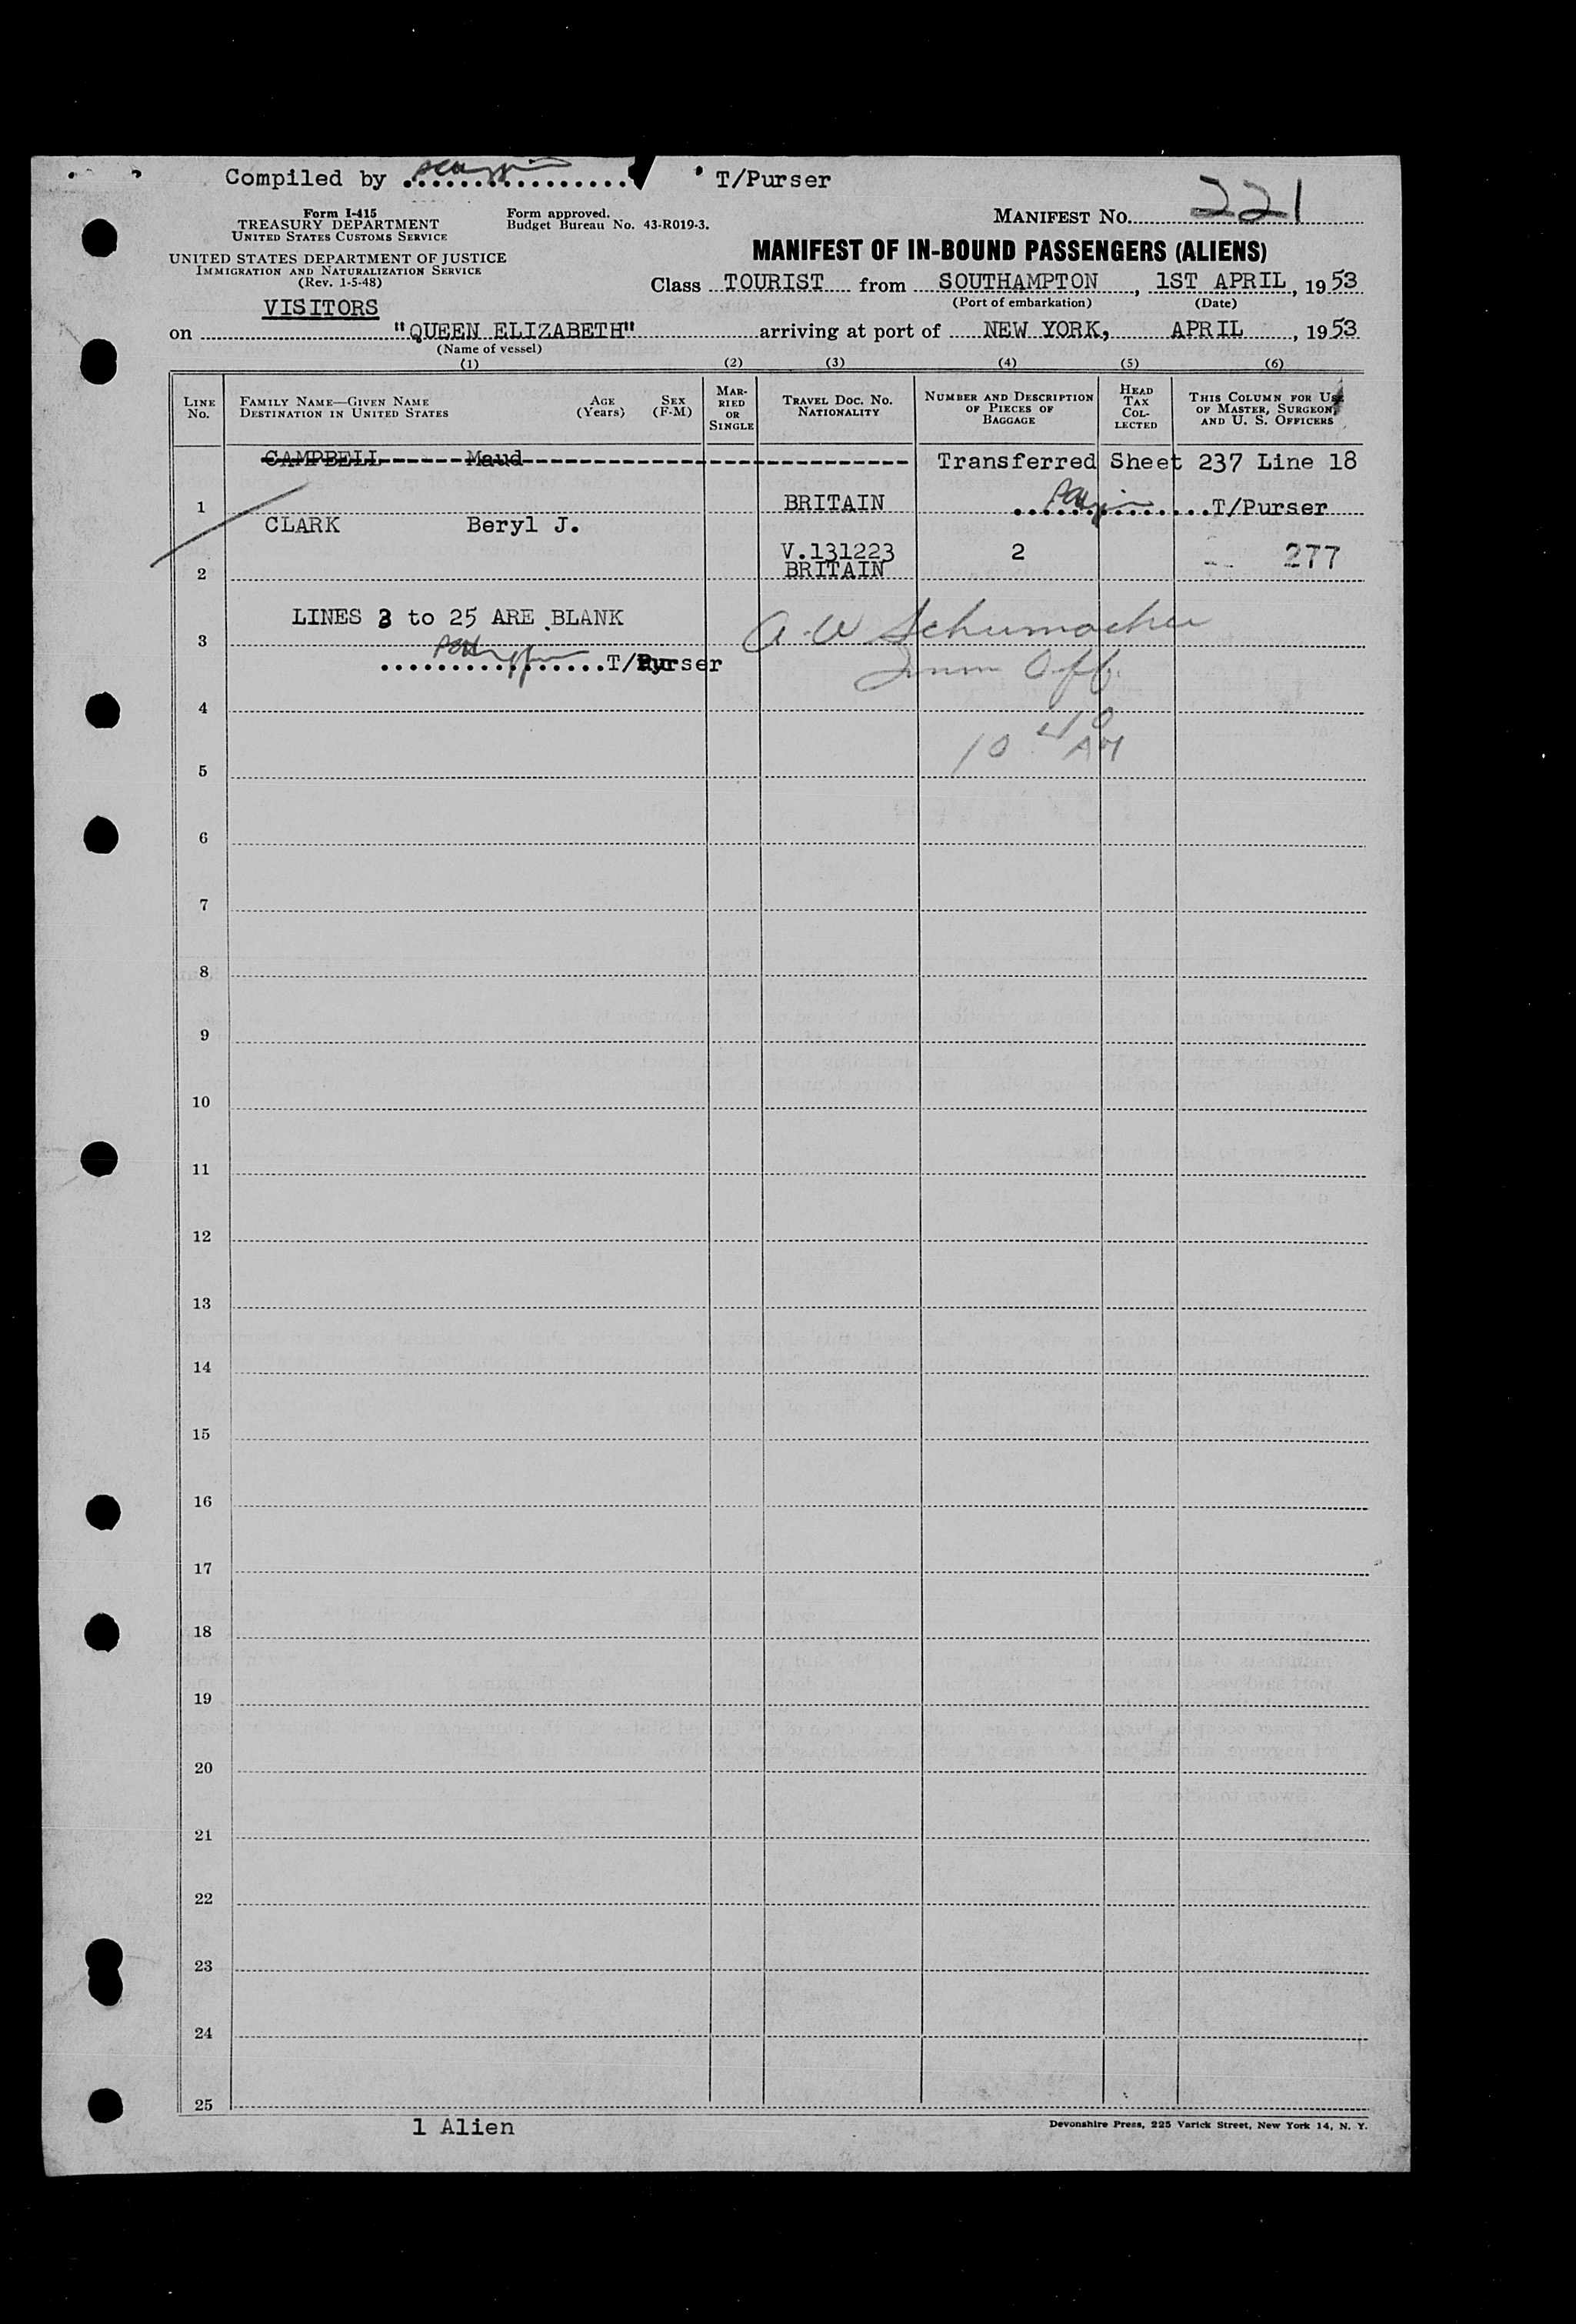 Compiled by ................ T/Purser
Form I-415
TREASURY DEPARTMENT
UNITED STATES CUSTOMS SERVICE
Form approved.
Budget Bureau No. 43-R019-3.
MANIFEST NO. 221
UNITED STATES DEPARTMENT OF JUSTICE
IMMIGRATION AND NATURALIZATION SERVICE
(Rev. 1-5-48)
MANIFEST OF IN-BOUND PASSENGERS (ALIENS)
Class TOURIST from SOUTHAMPTON, 1ST APRIL, 1953
(Port of embarkation) (Date)
VISITORS
on "QUEEN ELIZABETH" arriving at port of NEW YORK, APRIL, 1953
(Name of vessel)
(1) (2) (3) (4) (5) (6)
LINE No.
FAMILY NAME—GIVEN NAME
DESTINATION IN UNITED STATES
AGE (Years)
SEX (F-M)
MARRIED OR SINGLE
TRAVEL DOC. NO. NATIONALITY
NUMBER AND DESCRIPTION OF PIECES OF BAGGAGE
HEAD TAX COLLECTED
THIS COLUMN FOR USE OF MASTER, SURGEON, AND U. S. OFFICERS
CAMPBELL Maud Transferred Sheet 237 Line 18
1 BRITAIN ..............T/Purser
CLARK Beryl J.
V.131223 2 277
2 BRITAIN
LINES 3 to 25 ARE BLANK
A W Schumacher
3
................T/Purser
Imm Off.
4
10 40 AM
5
6
7
8
9
10
11
12
13
14
15
16
17
18
19
20
21
22
23
24
25
1 Alien
Devonshire Press, 225 Varick Street, New York 14, N. Y.